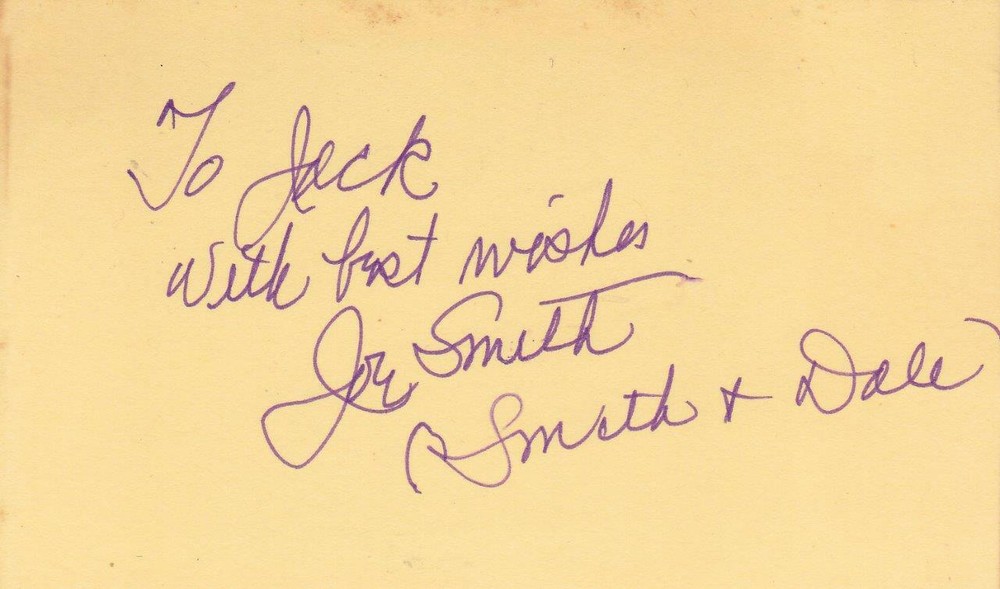 To Jack
With best wishes
Joe Smith
(Smith + Dale)